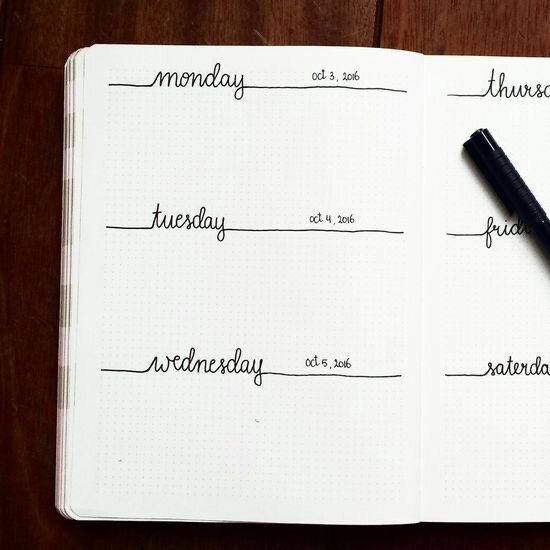 monday oct 3, 2016
tuesday oct 4, 2016
wednesday oct 5, 2016
thursd
frid
saterda